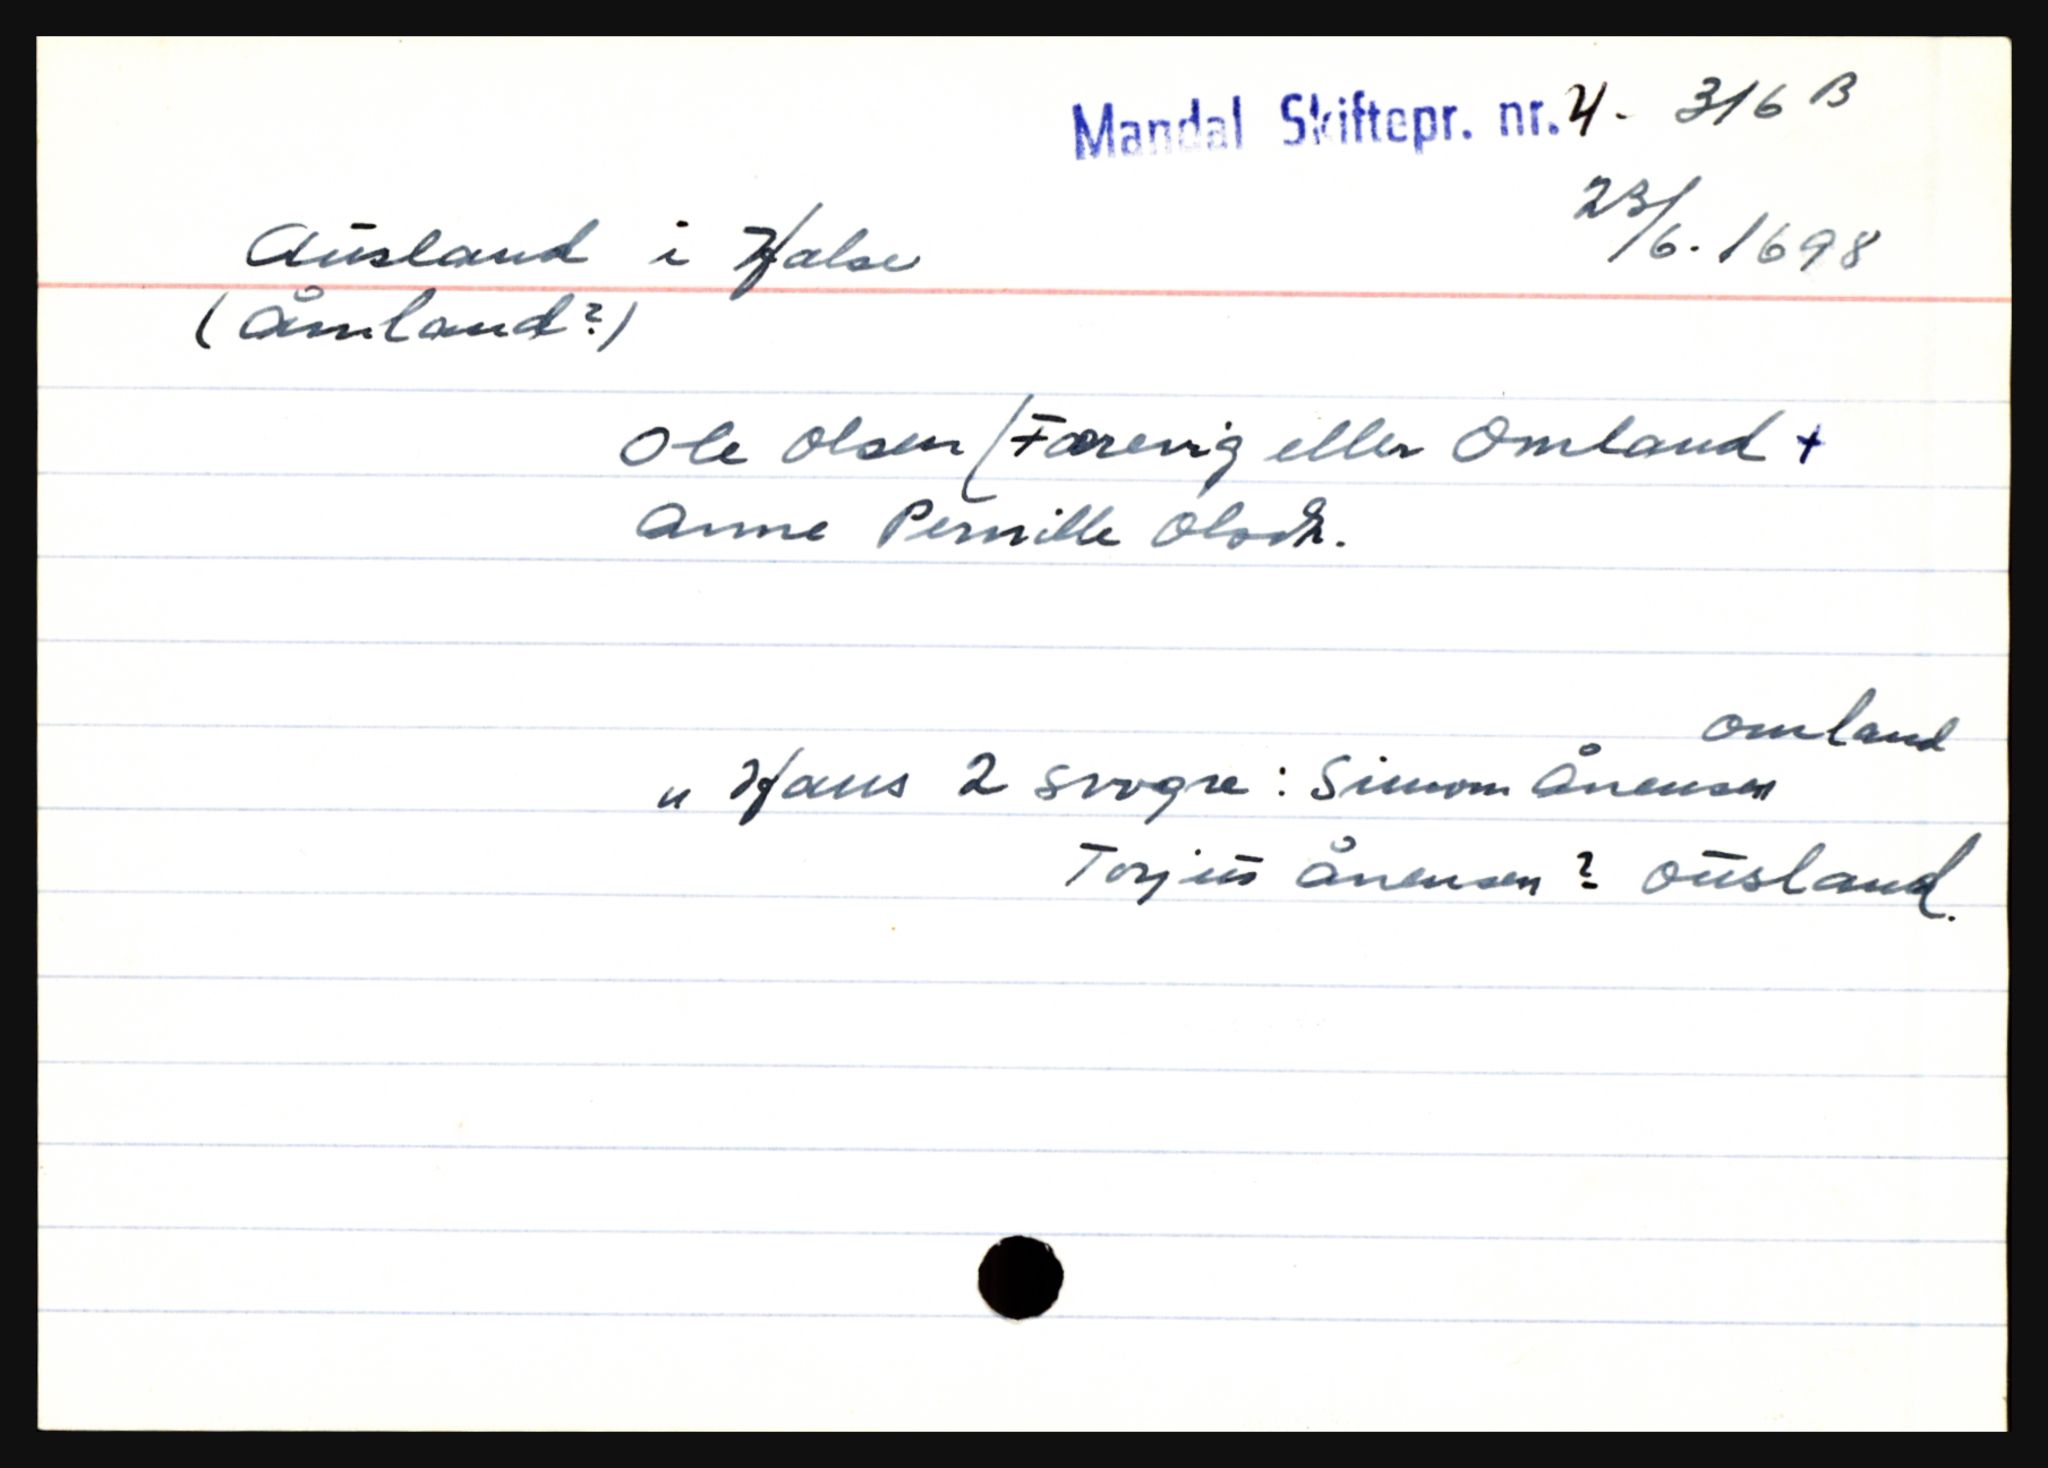 Mandal Skiftepr. nr. 4 - 316 B
23/6. 1698
Ausland i Halse
(Åmland?)
Ole Olsen (Færevig eller Omland +
Anne Pernille Olsdtr.
omland
" Hans 2 svogre: Simom Ånensen
Torjus Ånensen? Ousland.